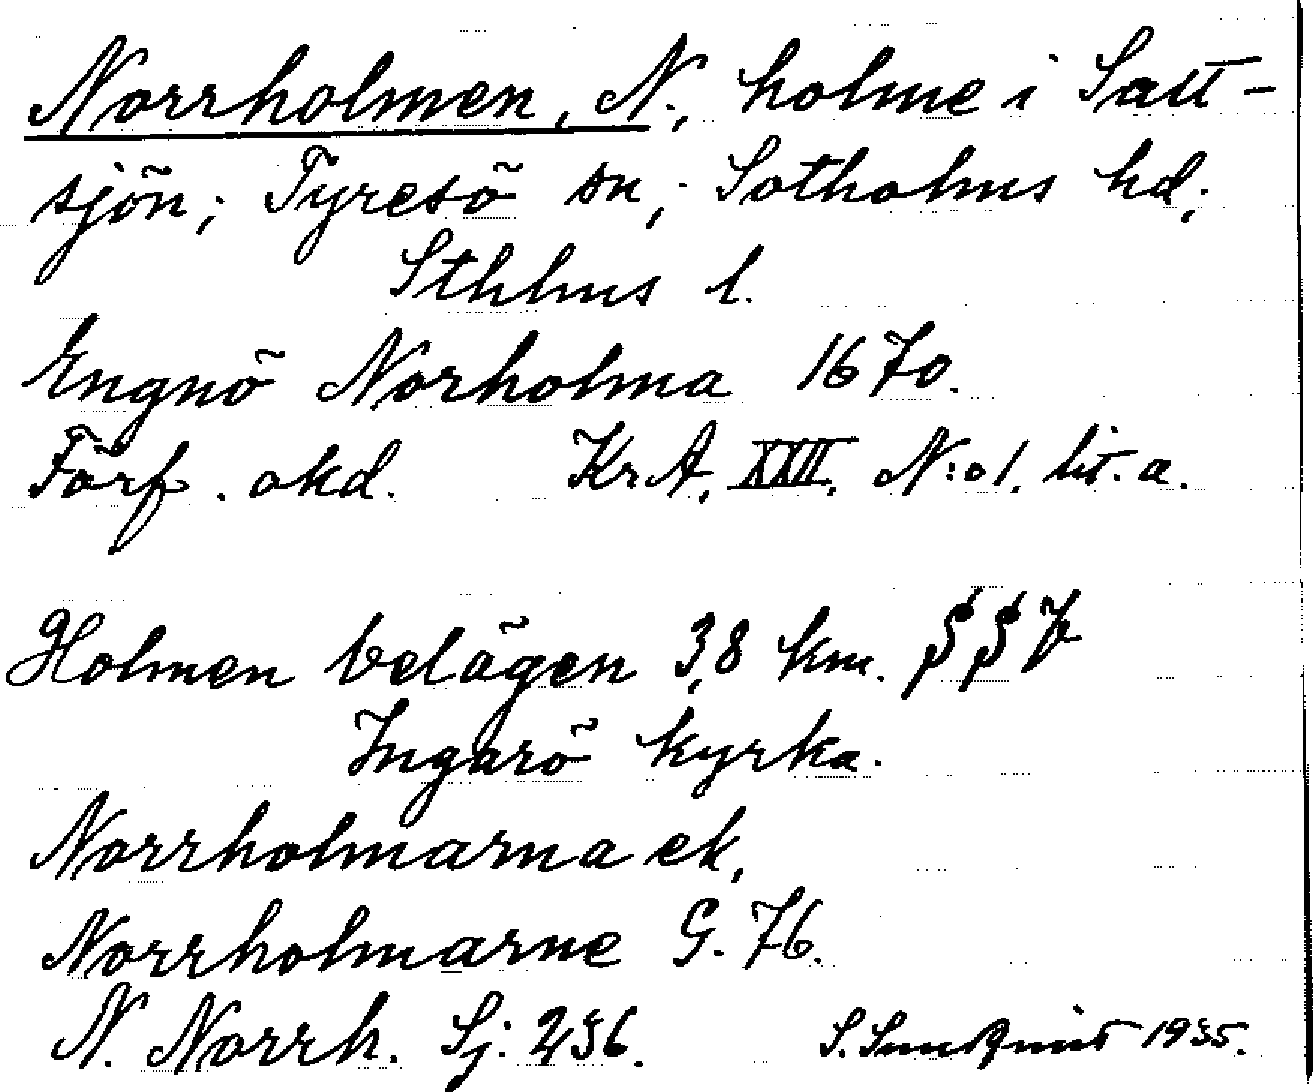 Norrholmen, N., holme i Salt-
sjön; Tyresö sn; Sotholms hd;
Sthlms l.
Engnö Norholma 1670.
Förf. okd. KrA. XXII. N:o 1. lit. a.
Holmen belägen 3,8 km. SSV
Ingarö kyrka.
Norrholmarna ek,
Norrholmarne G. 76.
N. Norrh. Sj. 236. S. 1935.